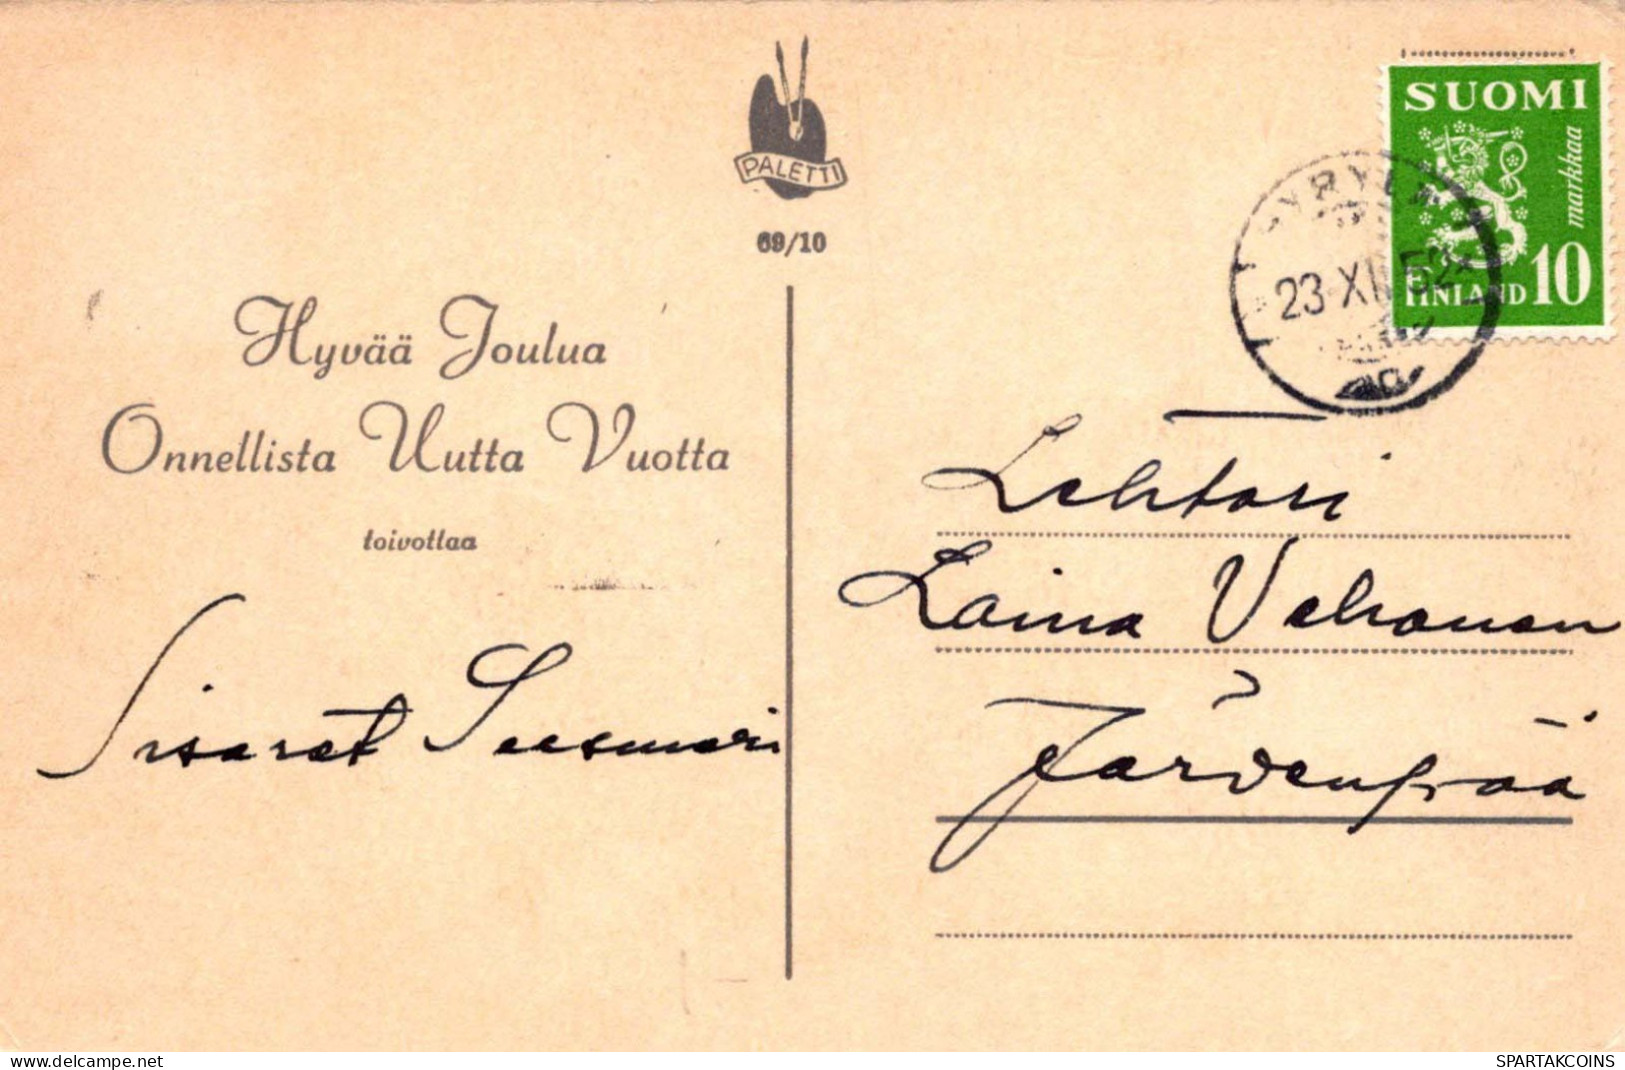 PALETTI
69/10
Hyvää Joulua
Onnellista Uutta Vuotta
toivottaa
Sisaret Seesmeri
SUOMI
markkaa
FINLAND 10
HYRYLÄ
23.XII.52
Lehtori
Laina Vehanen
Järvenpää
www.delcampe.net
SPARTAKCOINS